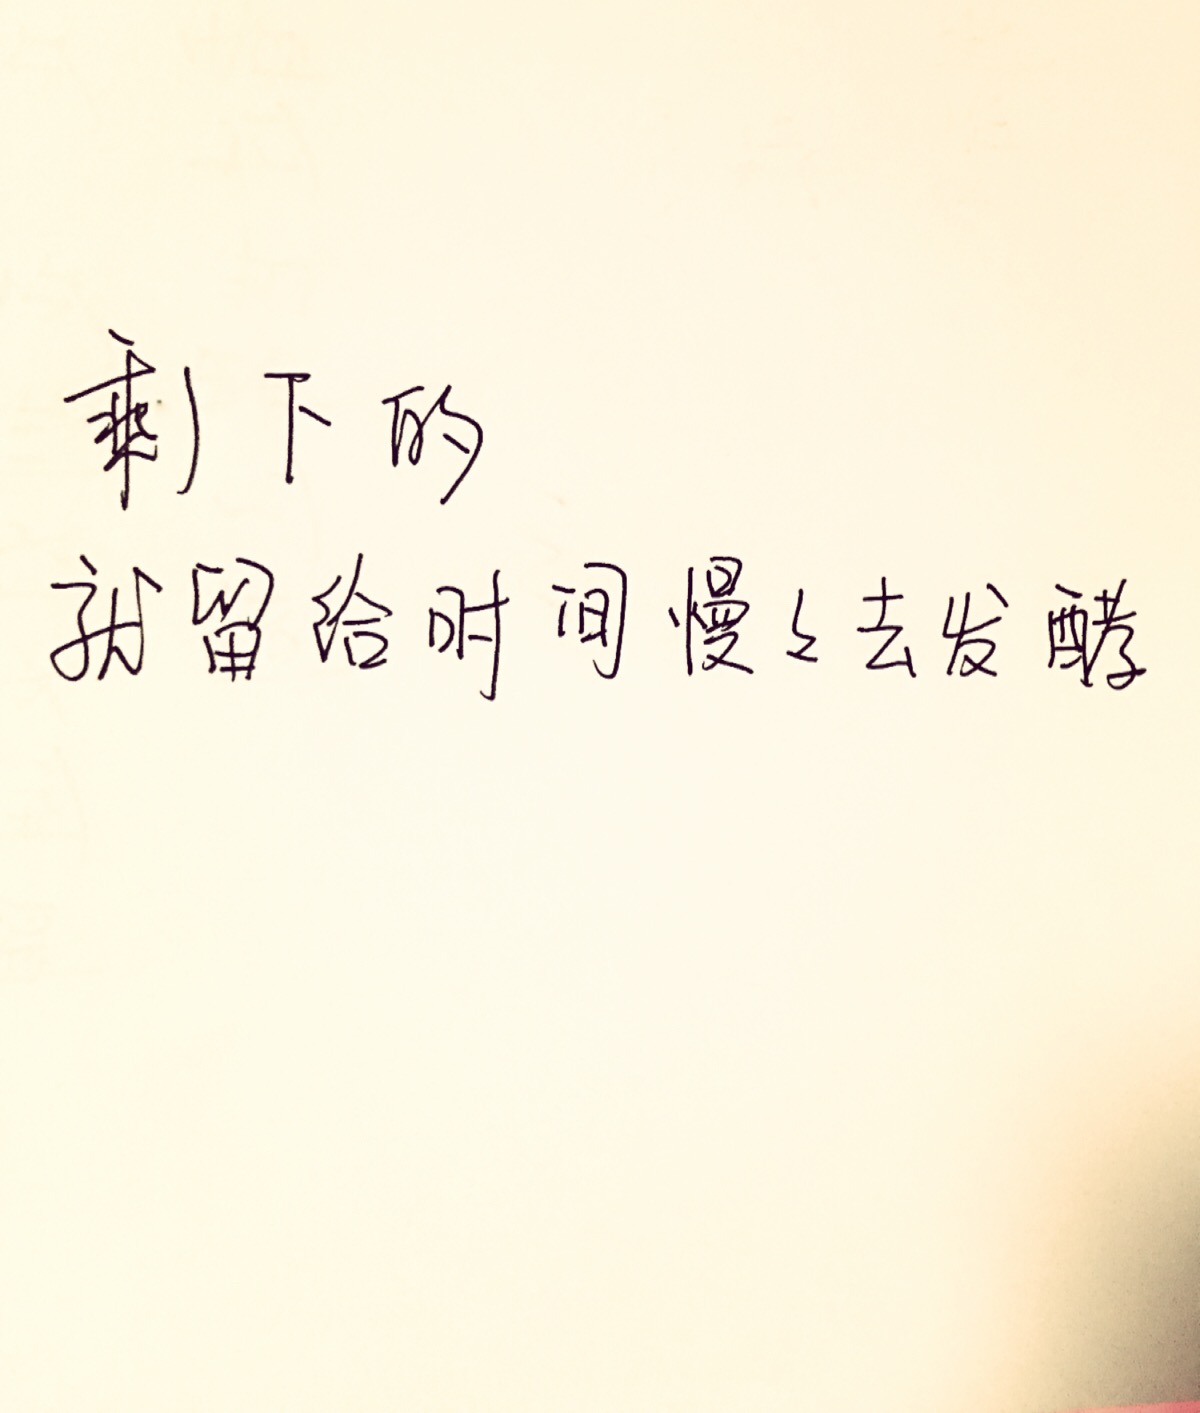 剩下的
就留给时间慢々去发酵